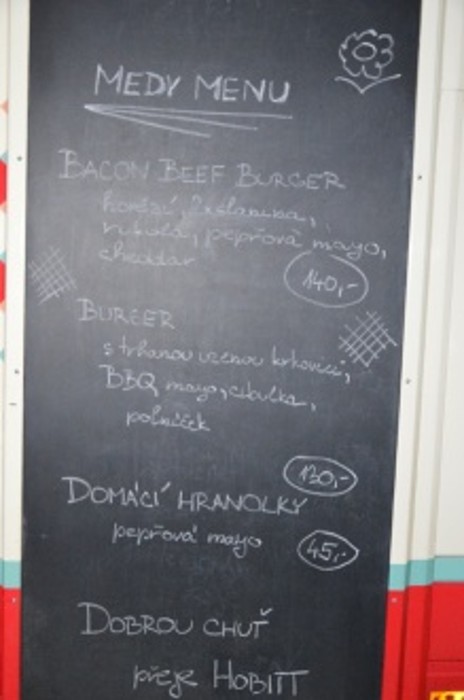 MEDY MENU
BACON BEEF BURGER
hovězí, 2x slanina,
rukola, pepřová mayo,
cheddar
140,-
BURGER
s trhanou uzenou krkovicí,
BBQ mayo, cibulka,
polníček
130,-
DOMÁCÍ HRANOLKY
pepřová mayo
45,-
DOBROU CHUŤ
přeje HOBITT